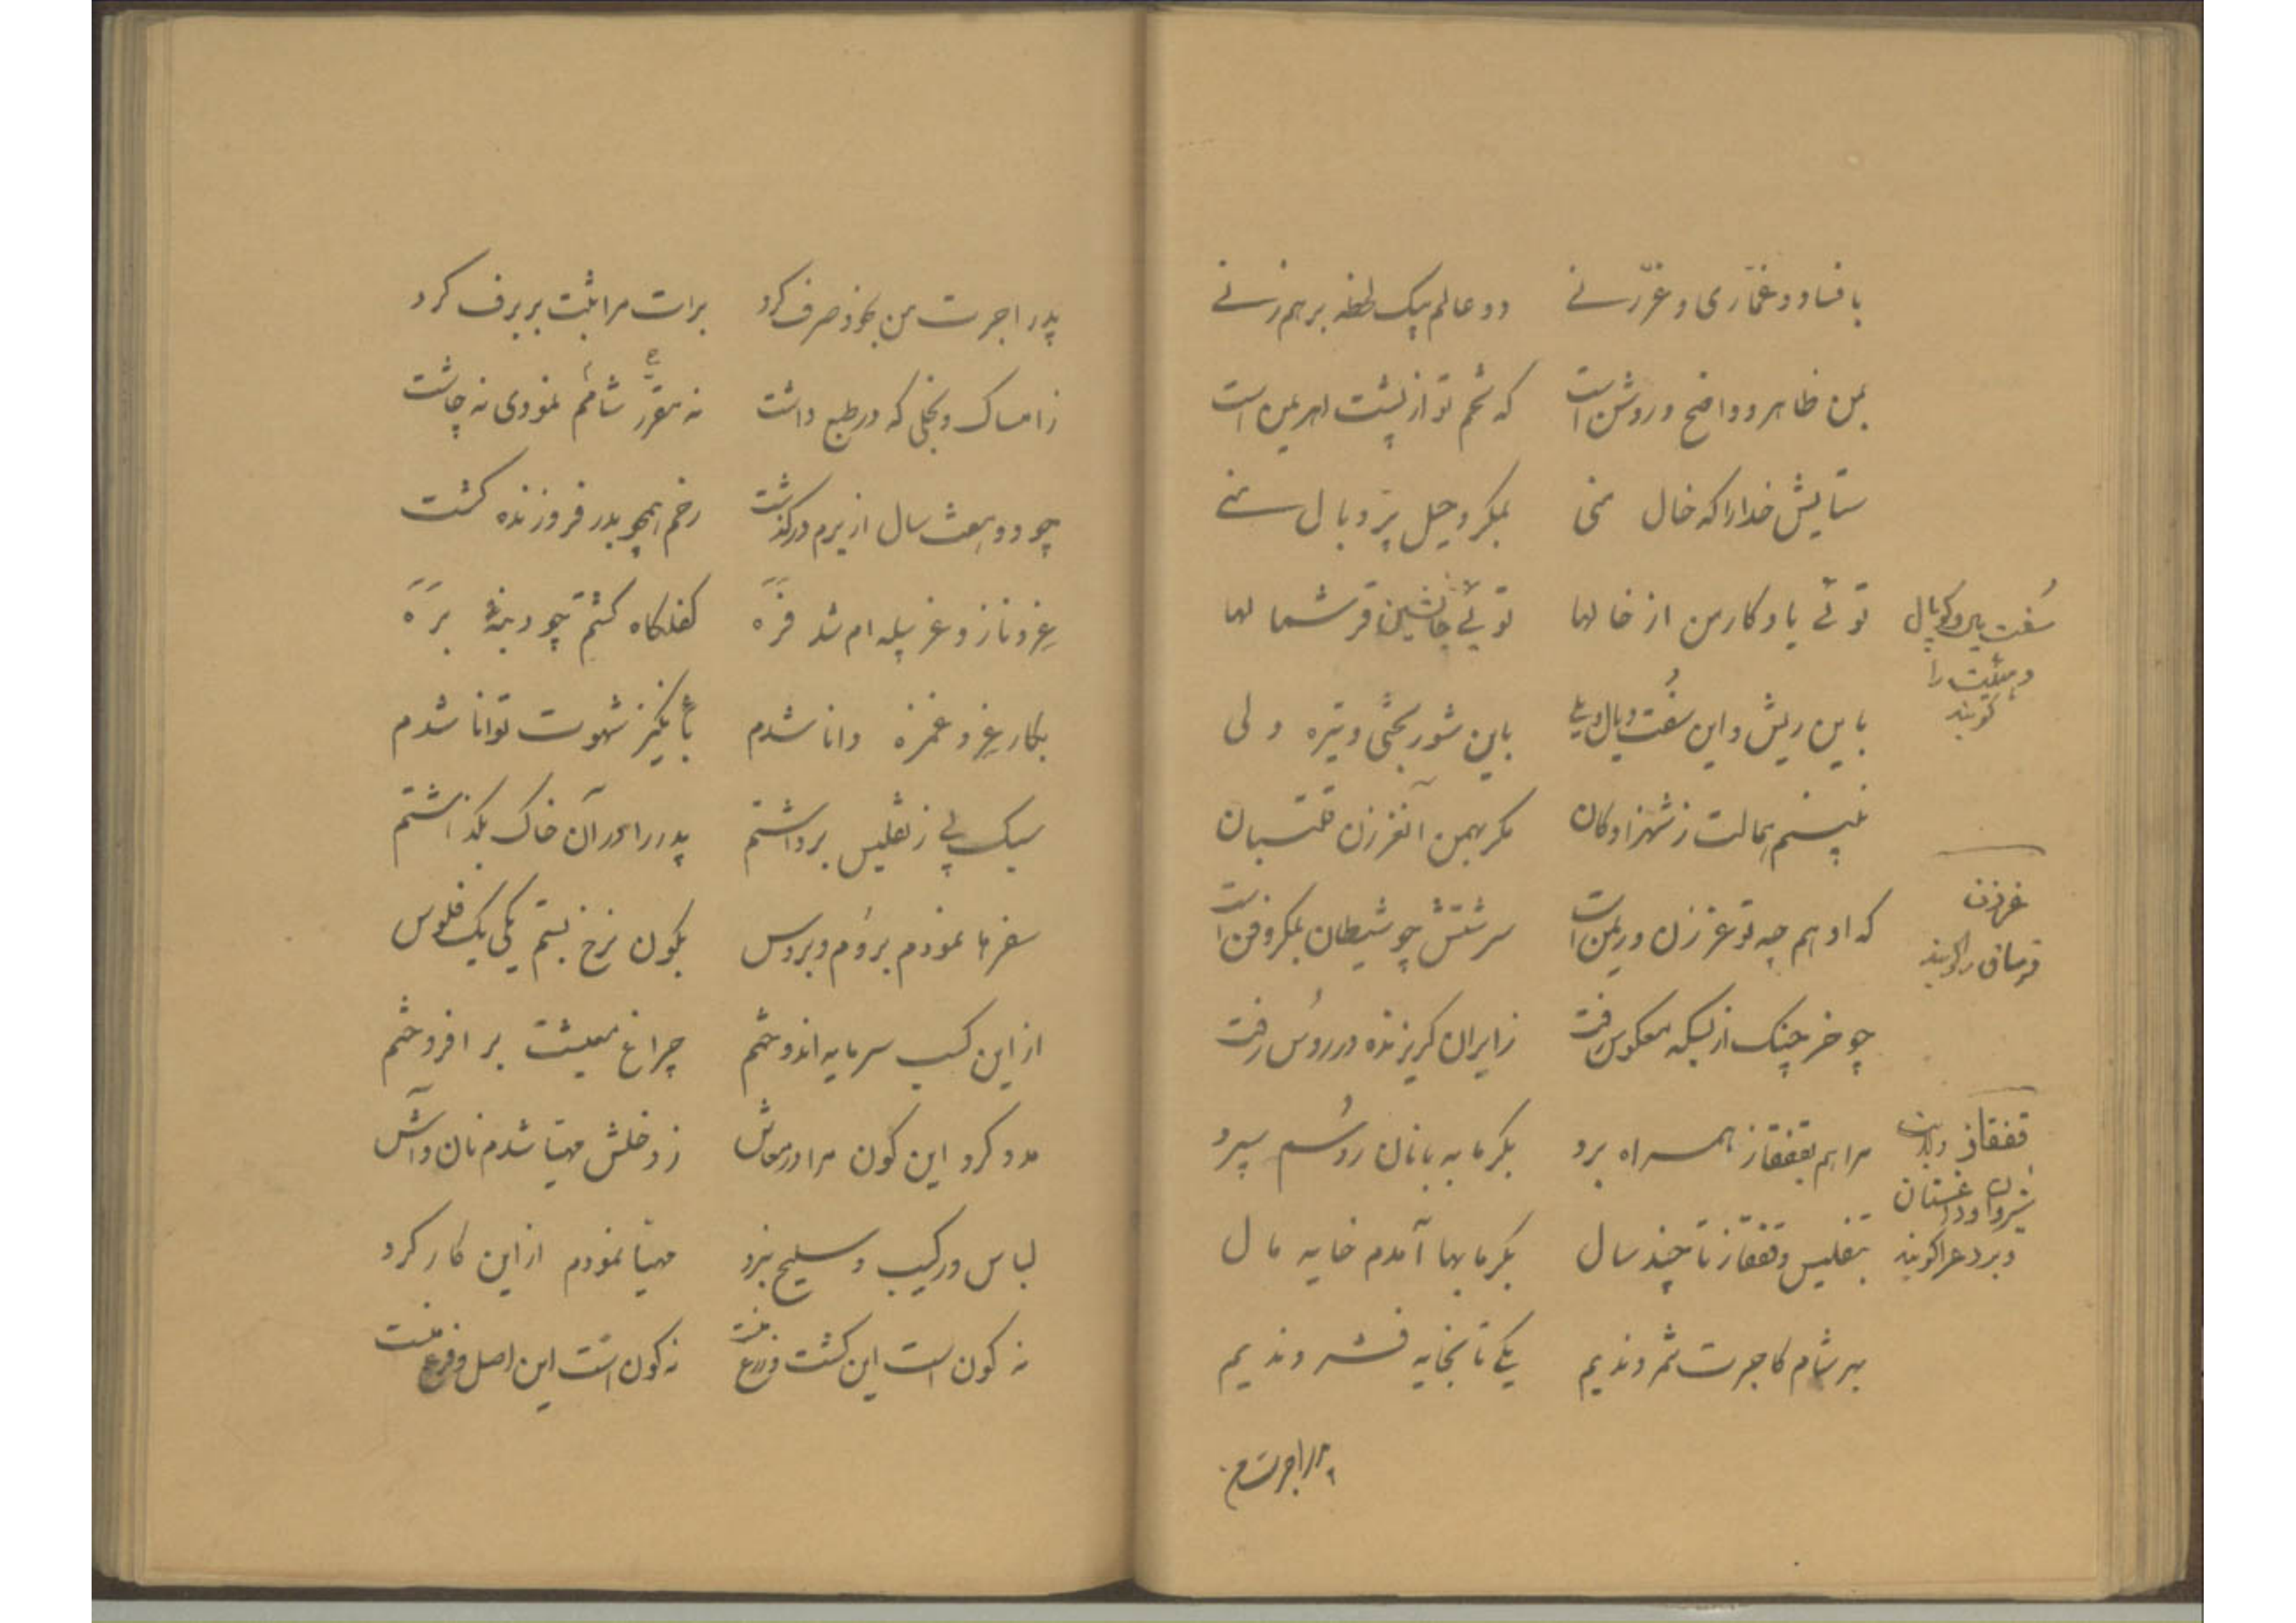 بافساد و غمّازی و غرّزنی دو عالم بیک لحظه برهم زنی
بمن ظاهر و واضح و روشن است که تخم تو از پشت اهریمن است
ستایش خدا را که خال منی بمکر و حیل پرّ و بال منی
توئی یادکار من از خالها توئی جانشین قرشمالها
باین ریش و این سُفت و یال و یلی باین شوربختی و تیره دلی
نه‌بینم همالت ز شهزادکان مکر بهمن آنغرزن قلتبان
که او هم چه تو غرزن و ریمن است سرشتش چو شیطان بمکر و فن است
چو خرچنک از بسکه معکوس رفت ز ایران کریزنده در روُس رفت
مرا هم بقفقاز همراه برد بکرمابه بانان روُسم سپرد
بتفلیس و قفقاز تا چند سال بکرمابها آمدم خایه مال
بهر شام کاجرت شمردندیم یکی تا بخایه فشردندیم
پدر اجرت من
سُفت یال و کوپال
و هیئت را
کویند
غرزن
قرمساق را کویند
قفقاز ولایت
شیروان و داغستان
و بردع را کویند
پدر اجرت من بخود صرف کرد برات مرا ثبت بر برف کرد
ز امساک و بخلی که در طبع داشت نه مقرّر شامم نمودی نه چاشت
چو دو بیست سال از برم درکذشت رخم همچو بدر فروزنده کشت
غِر و ناز و غربیله‌ام شد فَرَه کفلکاه کشتم چو دنبهٔ بَرَه
بکار غِر و غمزه دانا شدم بانکیز شهوت توانا شدم
سبک پی ز تفلیس برداشتم پدر را در آن خاک بکذاشتم
سفرها نمودم برُوم و بروس بکون نرخ بستم یکی یک فلوس
از این کسب سرمایه اندوختم چراغ معیشت برافروختم
مدد کرد این کون مرا در معاش ز دخلش مهیّا شدم نان و آش
لباس و رکیب و سلیح نبرد مهیّا نمودم از این کارکرد
نه کون است این کشت و زرع منست نه کون است این اصل و فرع منست